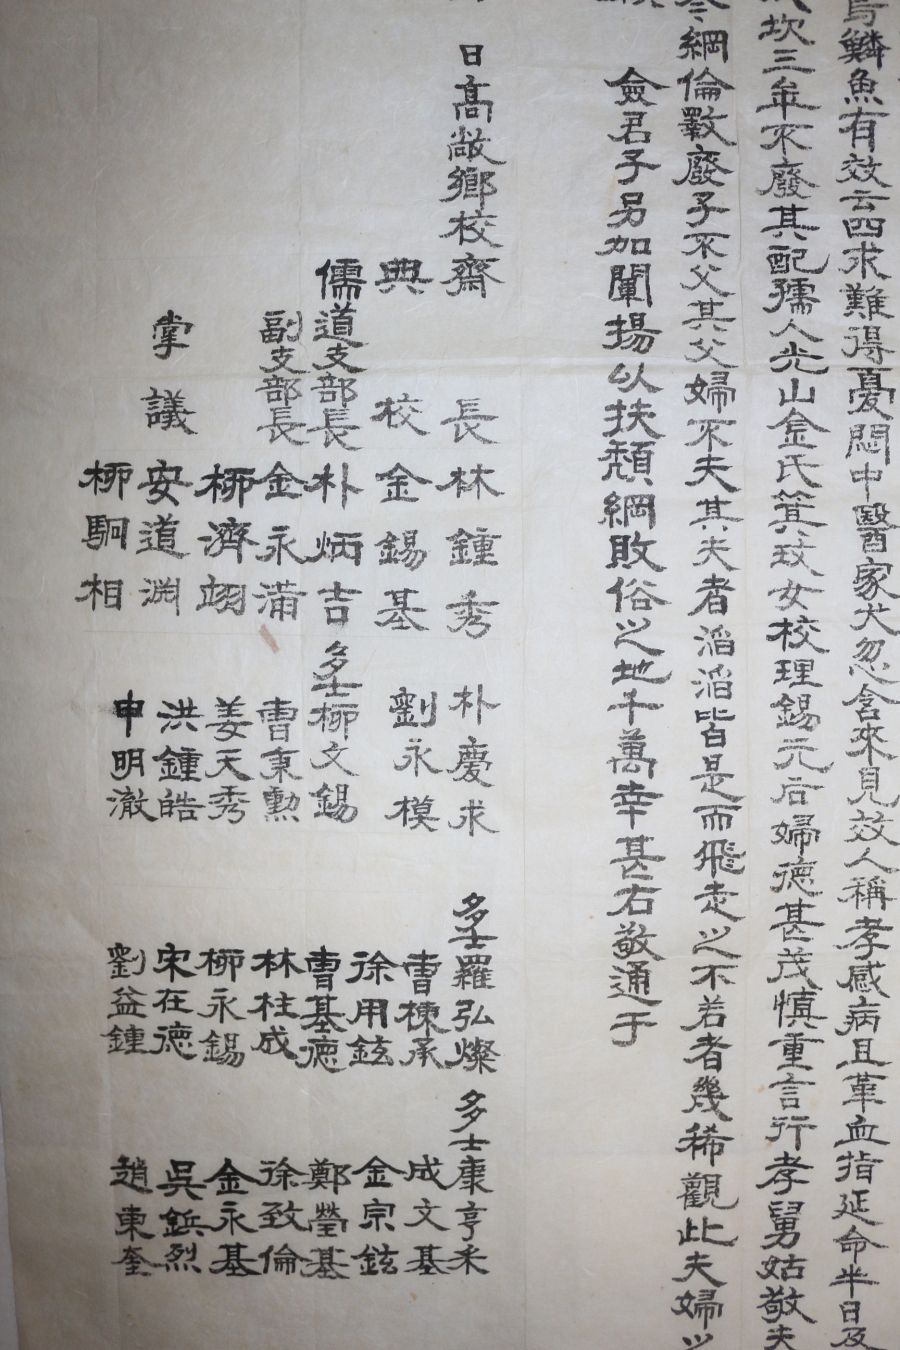 鱗魚有效云四求難得憂悶中醫家犬忽含來見效人稱孝感病且革血指延命半日及
坎三年不廢其配孺人光山金氏箕玟女校理錫元后婦德甚茂愼重言行孝舅姑敬夫
綱倫斁廢子不父其父婦不夫其夫者滔滔皆是而飛走之不若者幾稀觀此夫婦之
僉君子另加闡揚以扶頹綱敗俗之地千萬幸甚右敬通于
日高敞鄕校齋長林鍾秀 朴慶求 多士羅弘燦 多士康亨釆
典校金錫基 劉永模 曺棟承 成文基
儒道支部長朴炳吉 多士柳文錫 徐用鉉 金宗鉉
副支部長金永蒲 曺秉勳 曺基德 鄭瑩基
柳濟翊 姜天秀 林柱成 徐致倫
掌議安道淵 洪鍾皓 柳永錫 金永基
柳駉相 申明澈 宋在德 吳鋲烈
劉益鍾 趙東奎